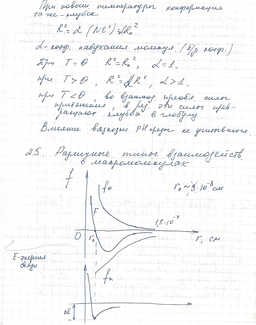 При повыш. температуры конформация
R² = α (Nl²) = αR₀²
α - коэф. набухания молекул. (б/р. коэф.)
При T = θ R² = R₀², α = 1.
при T > θ, R² = αR², α > 1.
при T < θ во взаимод. преобл. силы
притяжения, в рез. эти силы прев-
ращают клубок в глобулу
Влияние вязкости не учитывается.
25. Различные типы взаимодейств.
в макромолекулах
f
fо
r₀ ~ 3·10⁻⁸ см
F
r₀
1,5·10⁻⁸
0
r, см
E - энергия
связи
fп
f
ΔE